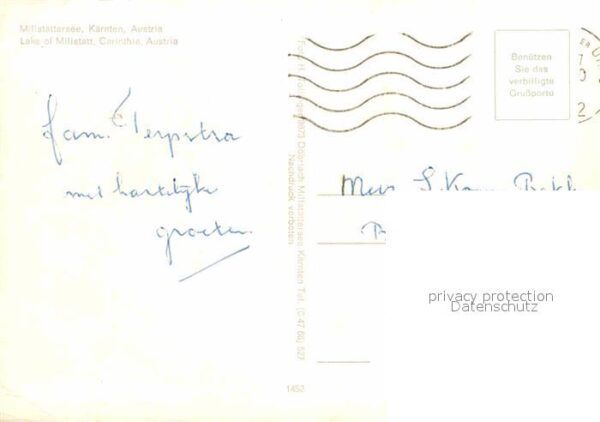 Millstättersee, Kärnten, Austria
Lake of Millstatt, Carinthia, Austria
Benützen
Sie das
verbilligte
Grußporto
fam. Terpstra
met hartelijke
groeten.
Mevr S.
Döbriach Millstättersee, Kärnten Tel. (0 47 66) 527
Nachdruck verboten
1452
privacy protection
Datenschutz